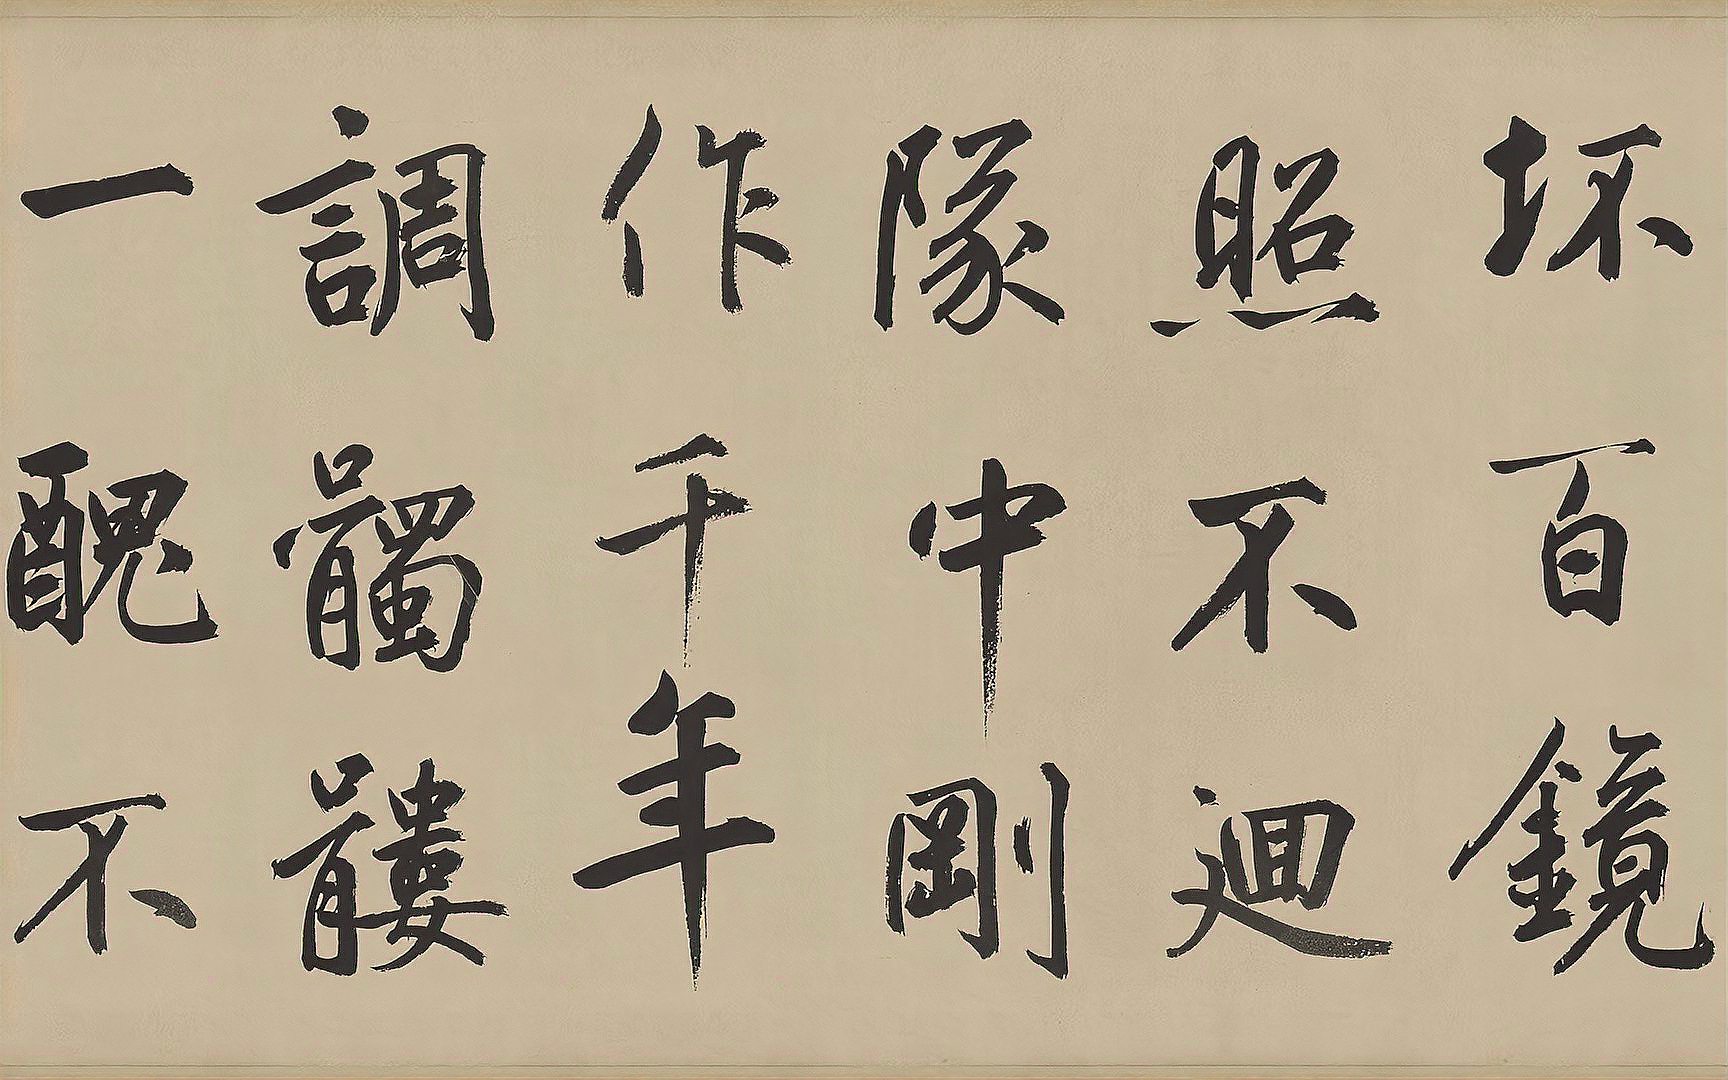 坏百鏡
照不迴
隊中剛
作千年
調髑髏
一醜不